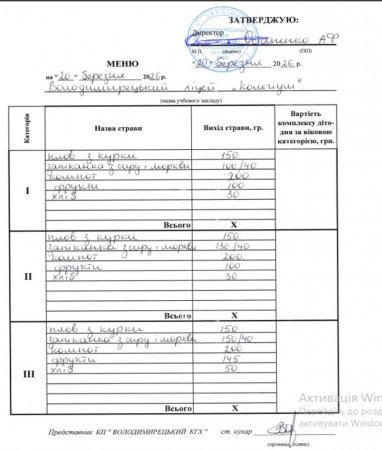 ЗАТВЕРДЖУЮ:
Директор
Остапенко А Ф
М.П. (підпис) (ПІП)
МЕНЮ "20" березня 2026 р.
на "20" березня 2026 р.
Володимирецький ліцей „Колегіум"
(назва учбового закладу)
Категорія Назва страви Вихід страви, гр. Вартість комплексу діто-дня за віковою категорією, грн.
I
плов з курки 150
запіканка з сиру і моркви 100/40
компот 200
фрукти 100
хліб 30
Всього X
II
плов з курки 150
запіканка з сиру і моркви 130/40
компот 200
фрукти 100
хліб 30
Всього X
III
плов з курки 150
запіканка з сиру і моркви 150/40
компот 200
фрукти 145
хліб 50
Всього X
Представник КП " ВОЛОДИМИРЕЦЬКИЙ КГХ " ст. кухар
(прізвище, підпис)
Активація Win
Перейдіть до розд
активувати Window